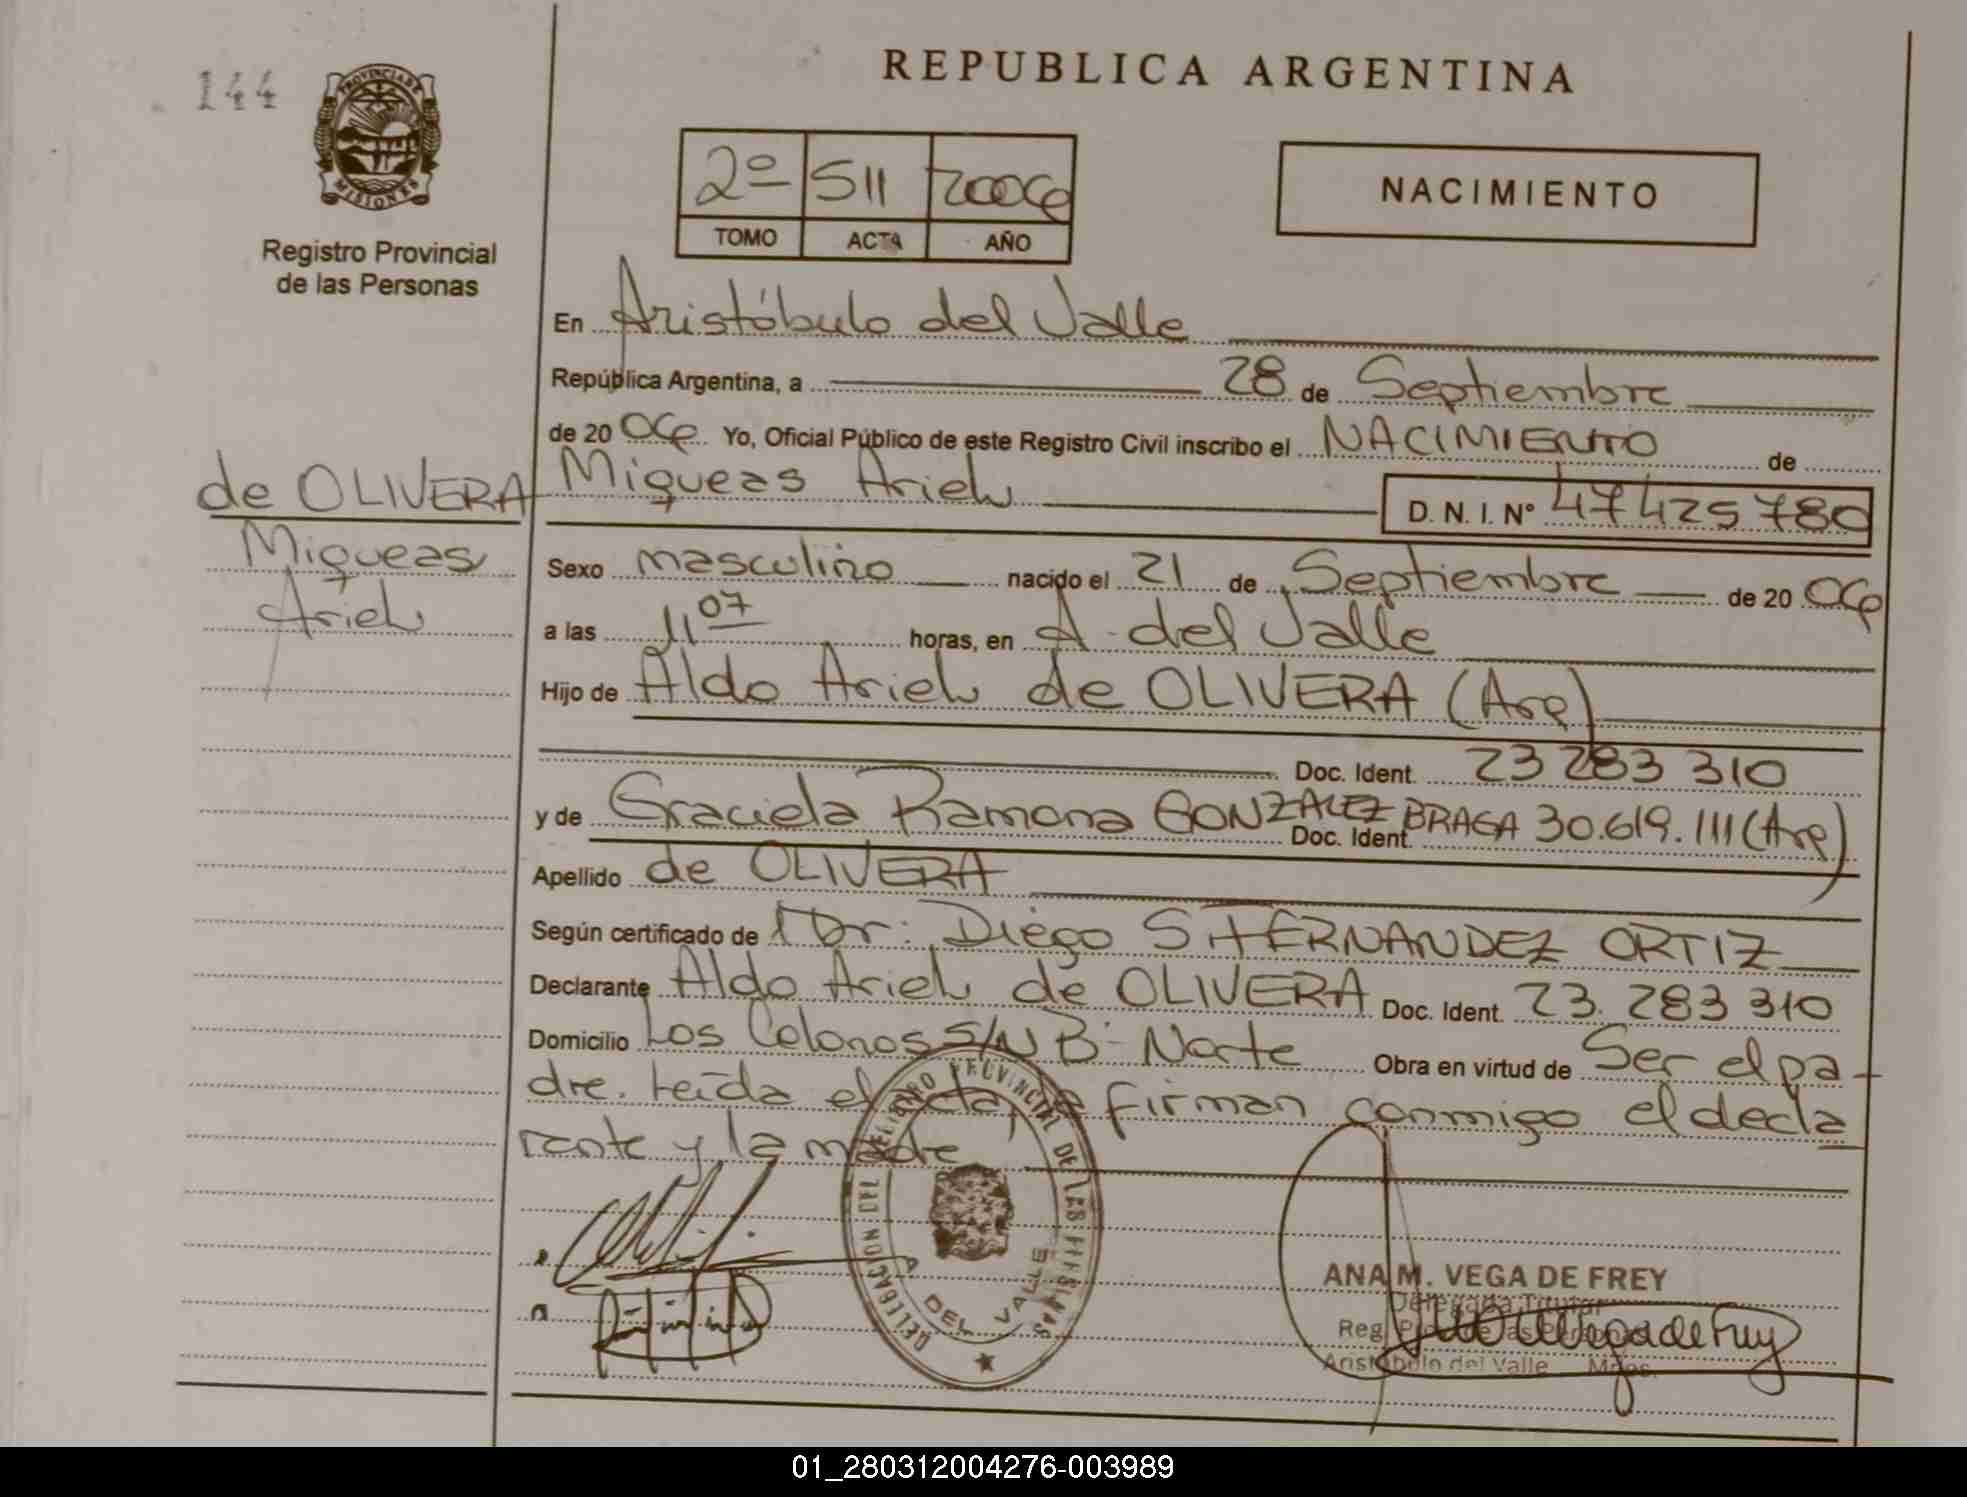 144
REPUBLICA ARGENTINA
PROVINCIA DE
MISIONES
Registro Provincial
de las Personas
2º 511 2006
TOMO ACTA AÑO
NACIMIENTO
En Aristóbulo del Valle
República Argentina, a 28 de Septiembre
de 2006 Yo, Oficial Público de este Registro Civil inscribo el NACIMIENTO de
de OLIVERA
Miqueas
Ariel
Miqueas Ariel
D. N. I. Nº 47425780
Sexo masculino nacido el 21 de Septiembre de 2006
a las 11 07 horas, en A. del Valle
Hijo de Aldo Ariel de OLIVERA (Arg)
Doc. Ident. 23 283 310
y de Graciela Ramona GONZALEZ BRAGA 30.619.111 (Arg)
Doc. Ident.
Apellido de OLIVERA
Según certificado de Dr. Diego S. FERNANDEZ ORTIZ
Declarante Aldo Ariel de OLIVERA Doc. Ident. 23. 283 310
Domicilio Los Colonos S/N Bº Norte Obra en virtud de Ser el pa-
dre. Leída el acta, la firman conmigo el decla
rante y la madre
DELEGACION DEL REGISTRO PROVINCIAL DE LAS PERSONAS
A. DEL VALLE
ANA M. VEGA DE FREY
Delegada Titular
Reg. Prov. de las Personas
Aristóbulo del Valle Mnes.
01_280312004276-003989